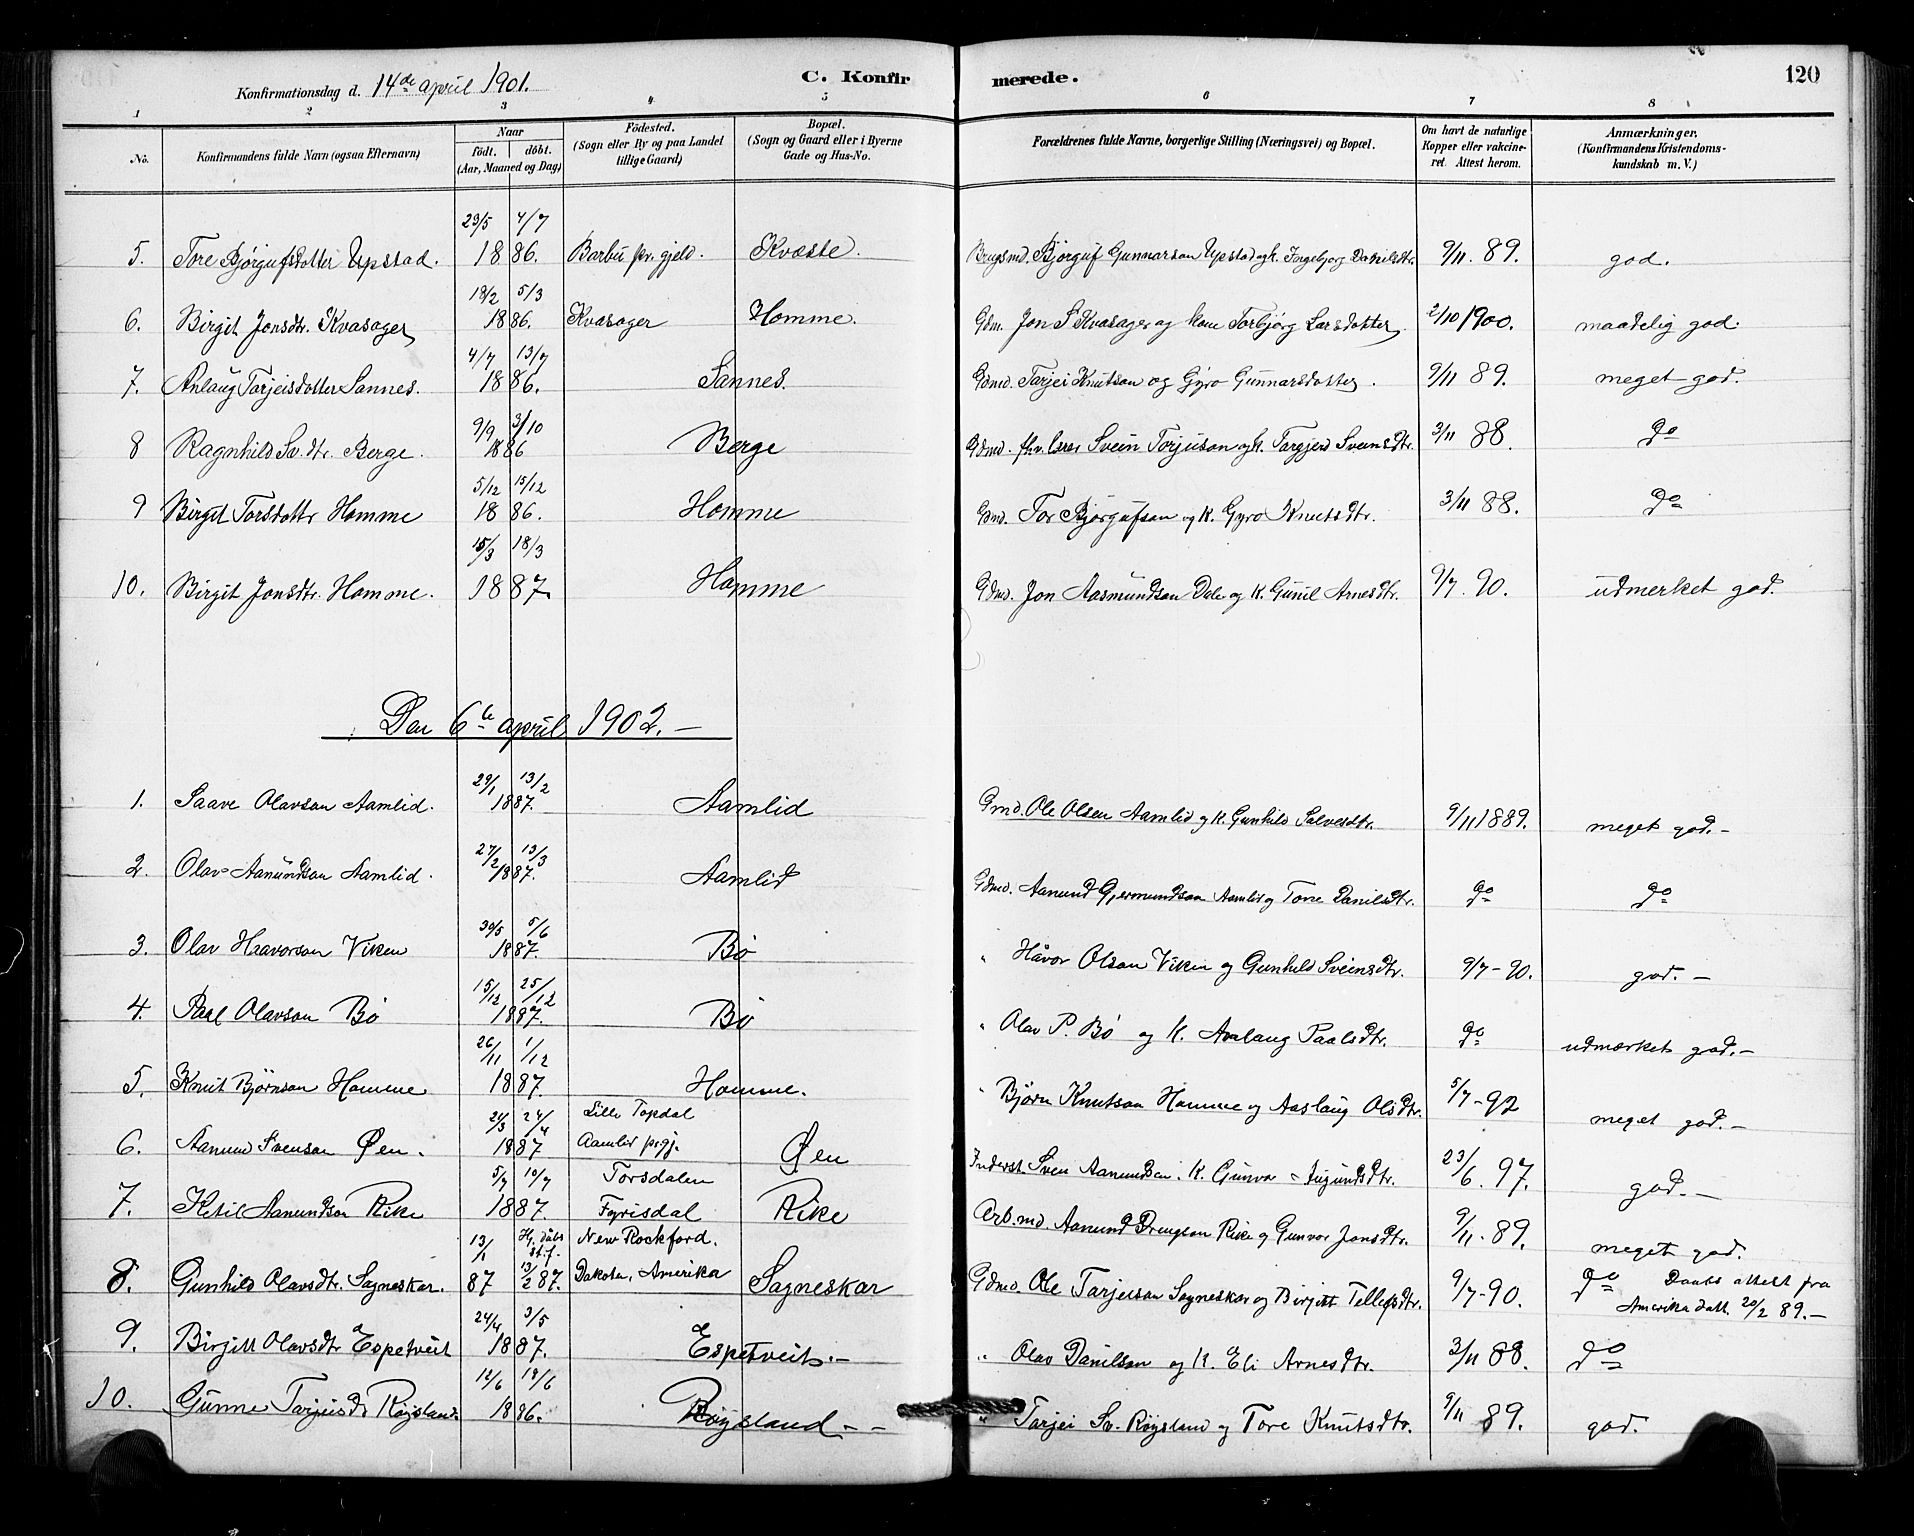 Konfirmationsdag d. 14de april 1901.
C. Konfirmerede.
120
1 2 3 4 5 6 7 8
No. Konfirmandens fulde Navn (ogsaa Efternavn) Naar födt. döbt. (Aar, Maaned og Dag) Födested. (Sogn eller By og paa Landet tillige Gaard) Bopæl. (Sogn og Gaard eller i Byerne Gade og Hus-No. Forældrenes fulde Navne, borgerlige Stilling (Næringsvei) og Bopæl. Om havt de naturlige Kopper eller vakcineret. Attest herom. Anmærkninger. (Konfirmandens Kristendomskundskab m. V.)
5. Tore Bjørgufsdotter Upstad. 23/5 4/7 1886. Barbu pr. gjeld. Kvæste. Brugsmd. Bjørguf Gunnarson Upstad og k. Ingebjørg Danilsdtr. 9/11. 89. god.
6. Birgit Jonsdtr. Kvasager 18/2 5/3 1886. Kvasager Homme. Gdm. Jon S. Kvasager og kone Torbjørg Larsdotter. 2/10 1900. maadelig god.
7. Anlaug Tarjeisdotter Sannes. 4/7 13/7 1886. Sannes. Gdmd. Tarjei Knutson og Gyro Gunnarsdotter. 9/11 89. meget god.
8 Ragnhild Sv.dtr. Berge. 9/9 3/10 1886 Berge Gdmd. Svein Torjuson og k. Targjerd Sveinsdtr. 3/11 88. do
9 Birgit Torsdottr Homme 5/12 15/12 1886. Homme Gdmd. Tor Bjørgufson og k. Gyro Knutsdtr. 3/11 88. do
10. Birgit Jonsdtr. Homme. 15/3 18/3 1887. Homme Gdmd. Jon Aasmundson Dale og k. Gunil Arnesdtr. 9/7. 90. udmerket god.
Den 6te april 1902. –
1. Saave Olavson Aamlid. 29/1 13/2 1887. Aamlid Gmd. Ole Olsen Aamlid og k. Gunhild Salvesdtr. 9/11 1889. meget god. –
2. Olav Aanundson Aamlid. 27/2 13/3 1887. Aamlid Gdmd. Aanund Gjermundson Aamlid og Tone Danilsdtr. do do
3. Olav Haavorson Viken 30/5 5/6 1887. Bø " Håvor Olson Viken og Gunhild Sveinsdtr. 9/7 - 90. god. –
4. Paal Olavson Bø 15/12 25/12 1887. Bø " Olav P. Bø og k. Aaslaug Paalsdtr. do udmærket god. –
5. Knut Bjørnson Homme 26/11 1/12 1887. Homme. " Bjørn Knutson Homme og Aaslaug Olsdtr. 5/7 - 92 meget god. –
6. Aanund Svenson Øen. 21/3 24/4 1887 Lille Topdal Aamlid prgj. Øen Inderst Sven Aanundsen. k. Gunvor 23/6. 97. god. –
7. Ketil Aanundson Rike 5/7 10/7 1887. Torsdalen Fyrisdal Rike Arb.md. Aanund Drengson Rike og Gunvor Jonsdtr. 9/11. 89. meget god.
8. Gunhild Olavsdtr. Sagneskar. 13/1 87 Hj. døbt st. f. 13/2 87. New Rockford. Dakota, Amerika Sagneskar Gdmd. Ole Tarjeison Sagneskar og Birgitt Tellefsdtr. 9/7 - 90. do Daabs attest fra Amerika datt. 20/2 89. –
9. Birgitt Olavsdtr Espetveit 24/4 3/5 1887. Espetveit. – " Olav Danilson og k. Eli Arnesdtr. 3/11 88. do
10. Gunne Tarjeisd Røysland. 12/6 19/6 1886. Røysland – – " Tarjei Sv. Røysland og Tore Knutsdtr. 9/11 89. god.